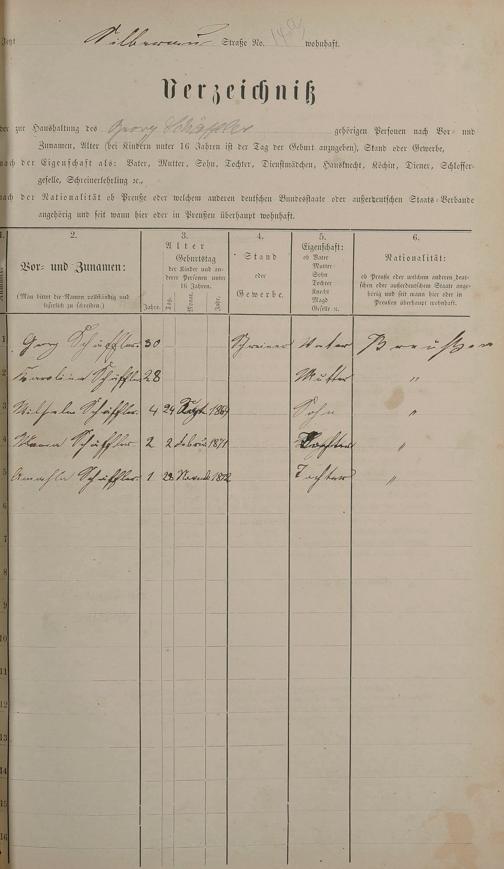 Jetzt Straße No. wohnhaft.
Verzeichniß
der zur Haushaltung des Georg Schäffler gehörigen Personen nach Vor- und
Zunamen, Alter (bei Kindern unter 16 Jahren ist der Tag der Geburt anzugeben), Stand oder Gewerbe,
nach der Eigenschaft als: Vater, Mutter, Sohn, Tochter, Dienstmädchen, Hausknecht, Köchin, Diener, Schlosser-
geselle, Schreinerlehrling ꝛc.,
nach der Nationalität ob Preuße oder welchem anderen deutschen Bundesstaate oder außerdeutschen Staats-Verbande
angehörig und seit wann hier oder in Preußen überhaupt wohnhaft.
1. 2. 3. 4. 5. 6.
Vor- und Zunamen:
(Man bittet die Namen vollständig und
leserlich zu schreiben.)
Alter
Geburtstag
der Kinder und an-
derer Personen unter
16 Jahren.
Jahre. Tag. Monat. Jahr.
Stand
oder
Gewerbe.
Eigenschaft:
ob Vater
Mutter
Sohn
Tochter
Knecht
Magd
Geselle ꝛc.
Nationalität:
ob Preuße oder welchem anderen deut-
schen oder außerdeutschen Staate ange-
hörig und seit wann hier oder in
Preußen überhaupt wohnhaft.
1 Georg Schäffler 30 Schreiner Vater Preußen
2 Karolina Schäffler 28 Mutter "
3 Wilhelm Schäffler 4 24 Sohn "
4 Schäffler 2 2 Februar 1871 Tochter "
5 Schäffler 1 28 Novemb 1872 Tochter "
6
7
8
9
10
11
12
13
14
15
16